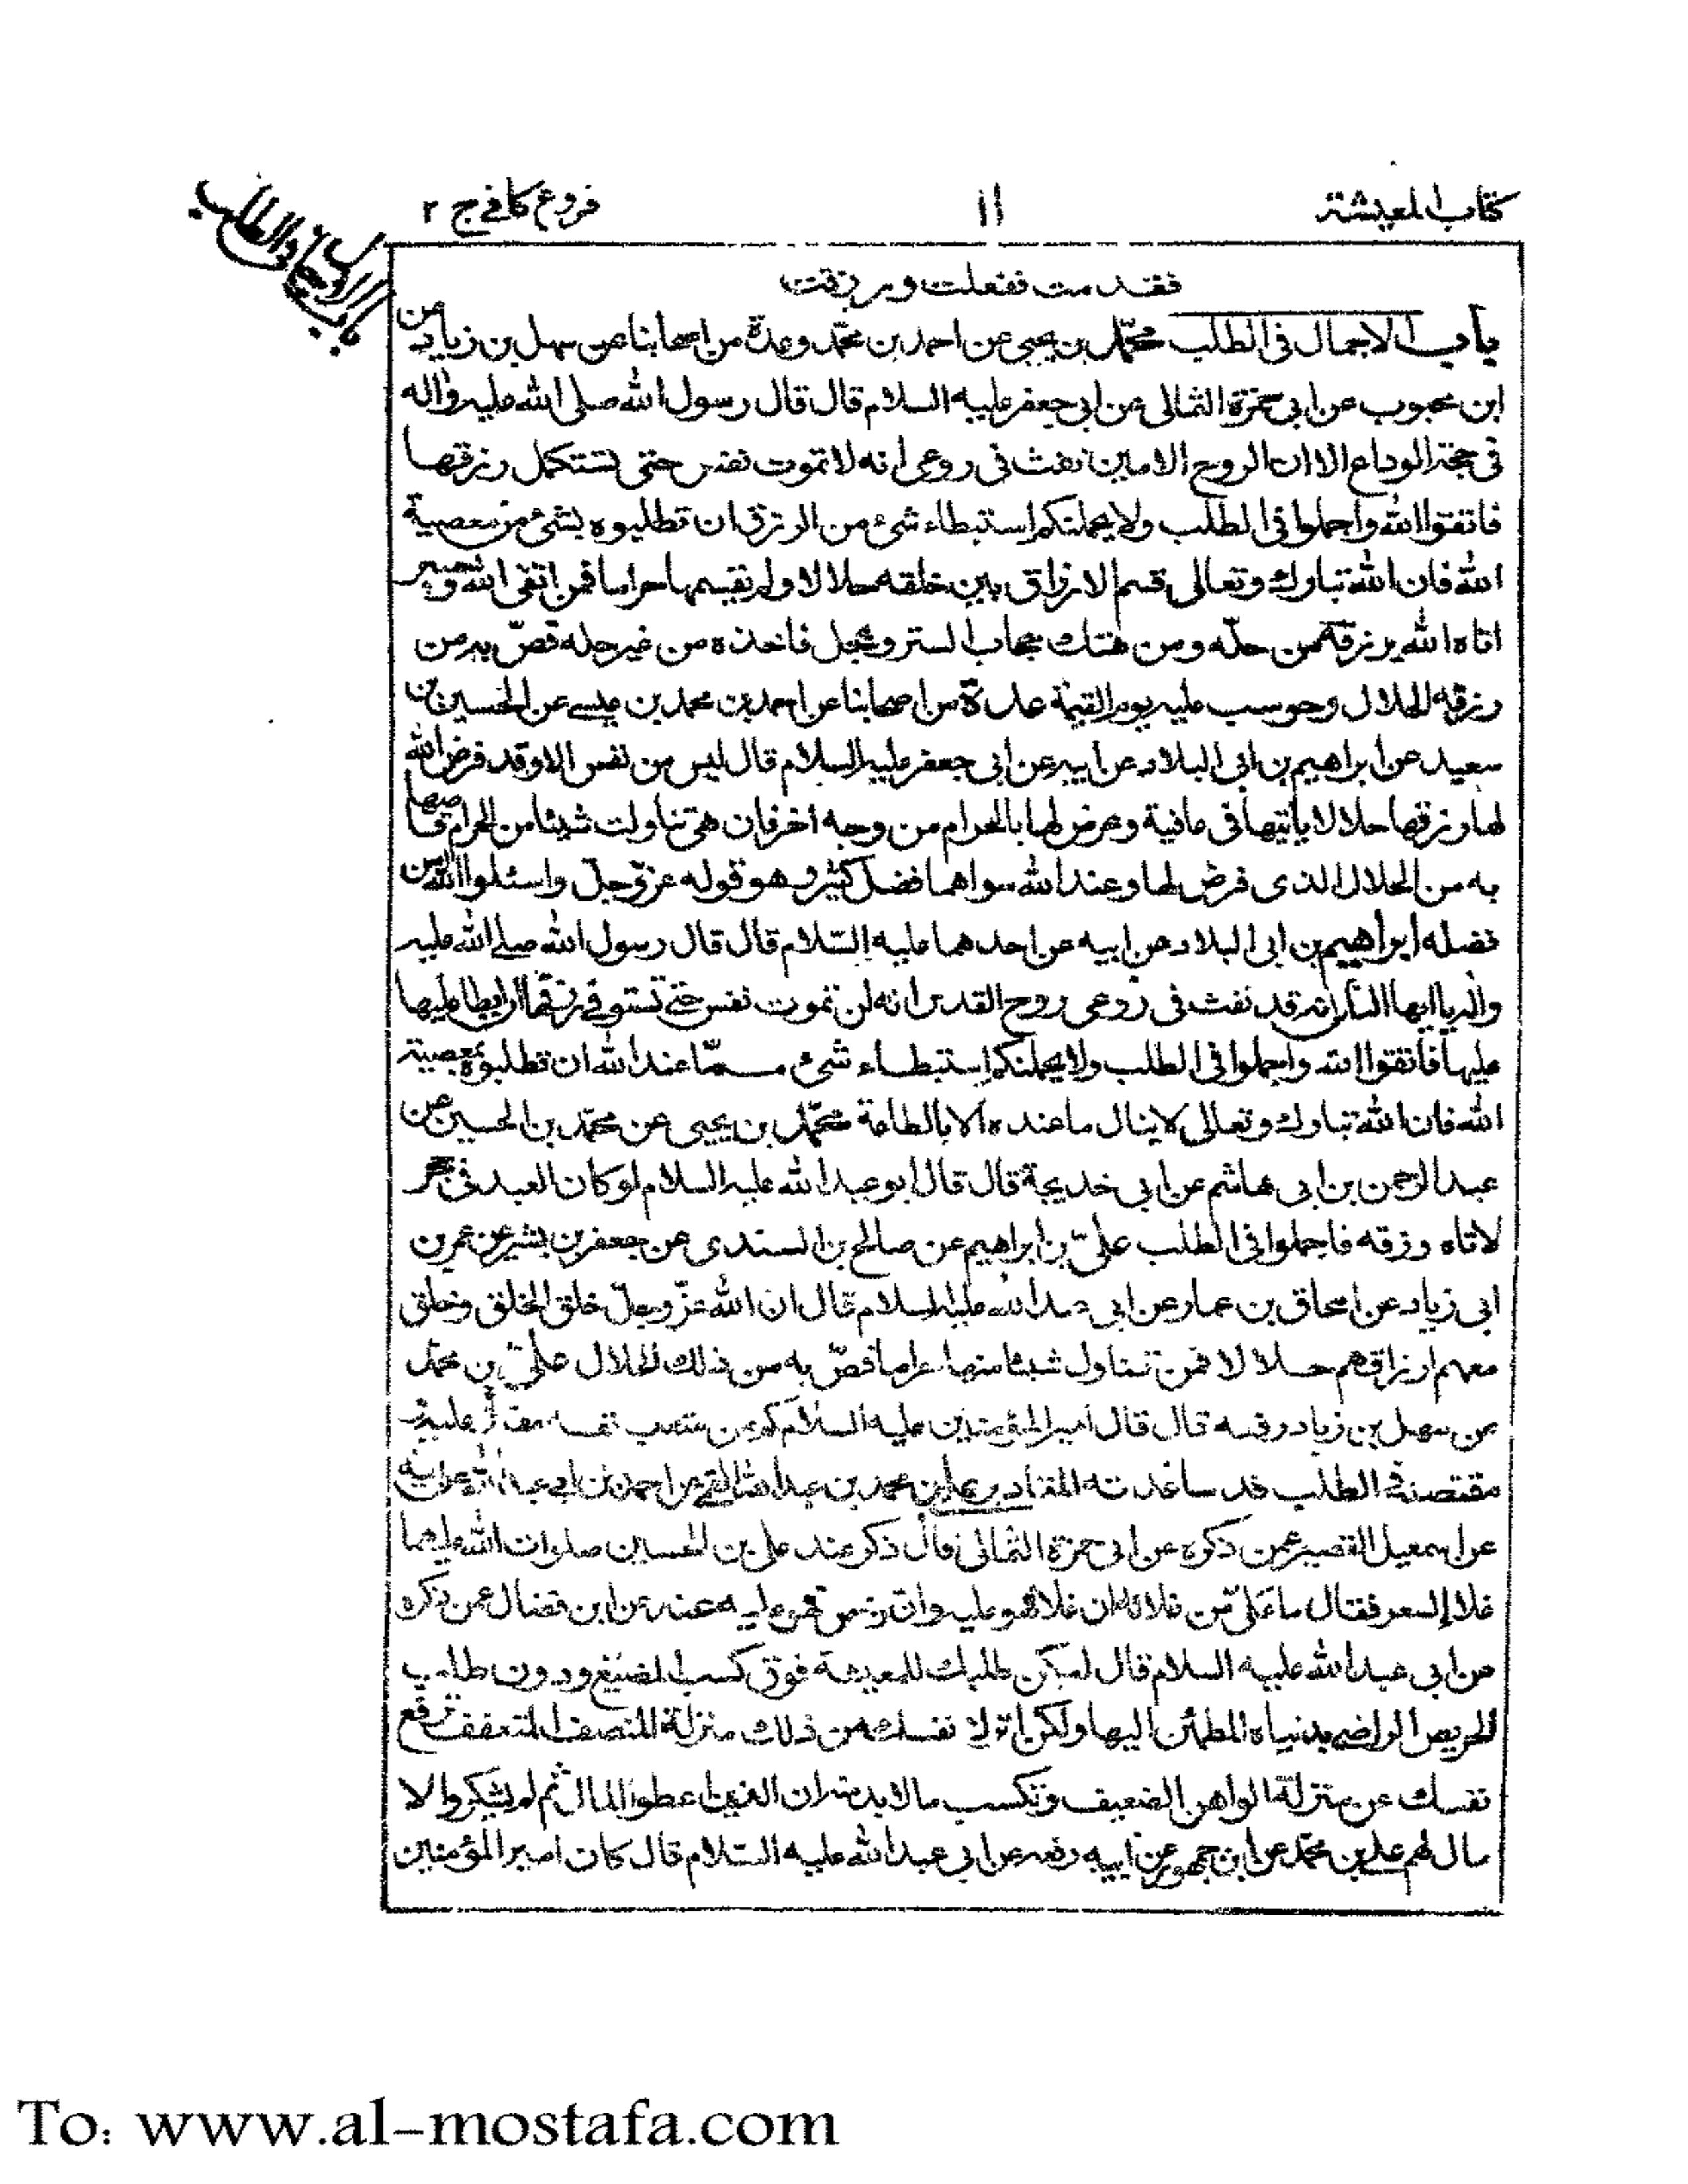 كتاب المعيشة
١١
فروع كافي ج ٢
باب الاجمال في الطلب
فقدمت ففعلت ورزقت
باب الاجمال في الطلب محمد بن يحيى عن احمد بن محمد وعدة من اصحابنا عن سهل بن زياد عن
ابن محبوب عن ابى حمزة الثمالى عن ابى جعفر عليه السلام قال قال رسول الله صلى الله عليه واله
في حجة الوداع الا ان الروح الامين نفث فى روعى انه لا تموت نفس حتى تستكمل رزقها
فاتقوا الله واجملوا فى الطلب ولا يحملنكم استبطاء شئ من الرزق ان تطلبوه بشئ من معصية
الله فان الله تبارك وتعالى قسم الارزاق بين خلقه حلالا ولم يقسمها حراما فمن اتقى الله وصبر
اتاه الله برزقه من حله ومن هتك حجاب الستر وعجل فاخذه من غير حله قص به من
رزقه الحلال وحوسب عليه يوم القيمة عدة من اصحابنا عن احمد بن محمد بن عيسى عن الحسين بن
سعيد عن ابراهيم بن ابى البلاد عن ابيه عن ابى جعفر عليه السلام قال ليس من نفس الا وقد فرض الله
لها رزقها حلالا يأتيها فى عافية وعرض لها بالحرام من وجه اخر فان هى تناولت شيئا من الحرام قاصها
به من الحلال الذى فرض لها وعند الله سواهما فضل كثير وهو قوله عز وجل واسئلوا الله من
فضله ابراهيم بن ابى البلاد عن ابيه عن احدهما عليه السلام قال قال رسول الله صلى الله عليه
واله يا ايها الناس انه قد نفث فى روعى روح القدس انه لن تموت نفس حتى تستوفى رزقها وان ابطا عليها
عليها فاتقوا الله واجملوا فى الطلب ولا يحملنكم استبطاء شئ مما عند الله ان تطلبوه بمعصية
الله فان الله تبارك وتعالى لا ينال ما عنده الا بالطاعة محمد بن يحيى عن محمد بن الحسين عن
عبد الرحمن بن ابى هاشم عن ابى خديجة قال قال ابو عبد الله عليه السلام لو كان العبد فى حجر
لاتاه رزقه فاجملوا فى الطلب على بن ابراهيم عن صالح بن السندى عن جعفر بن بشير عن عمر بن
ابى زياد عن اسحاق بن عمار عن ابى عبد الله عليه السلام قال ان الله عز وجل خلق الخلق وخلق
معهم ارزاقهم حلالا فمن تناول شيئا منها حراما قص به من ذلك الحلال على بن محمد
عن سهل بن زياد رفعه قال قال امير المؤمنين عليه السلام كم من متعب نفسه مقتر عليه و
مقتصد فى الطلب قد ساعدته المقادير على بن محمد بن عبد الله القمى عن احمد بن ابى عبد الله عن ابيه
عن اسمعيل القصير عمن ذكره عن ابى حمزة الثمالى قال ذكر عند على بن الحسين صلوات الله عليهما
غلاء السعر فقال ما على من غلائه ان غلا فهو عليه وان رخص فهو عليه عنه عن ابن فضال عمن ذكره
عن ابى عبد الله عليه السلام قال ليكن طلبك للمعيشة فوق كسب المضيع ودون طلب
الحريص الراضى بدنياه المطمئن اليها ولكن انزل نفسك من ذلك منزلة المنصف المتعفف ترفع
نفسك عن منزلة الواهن الضعيف وتكسب ما لا بد منه ان الذين اعطوا المال ثم لم يشكروا لا
مال لهم على بن محمد عن ابن جمهور عن ابيه رفعه عن ابى عبد الله عليه السلام قال كان امير المؤمنين
To: www.al-mostafa.com